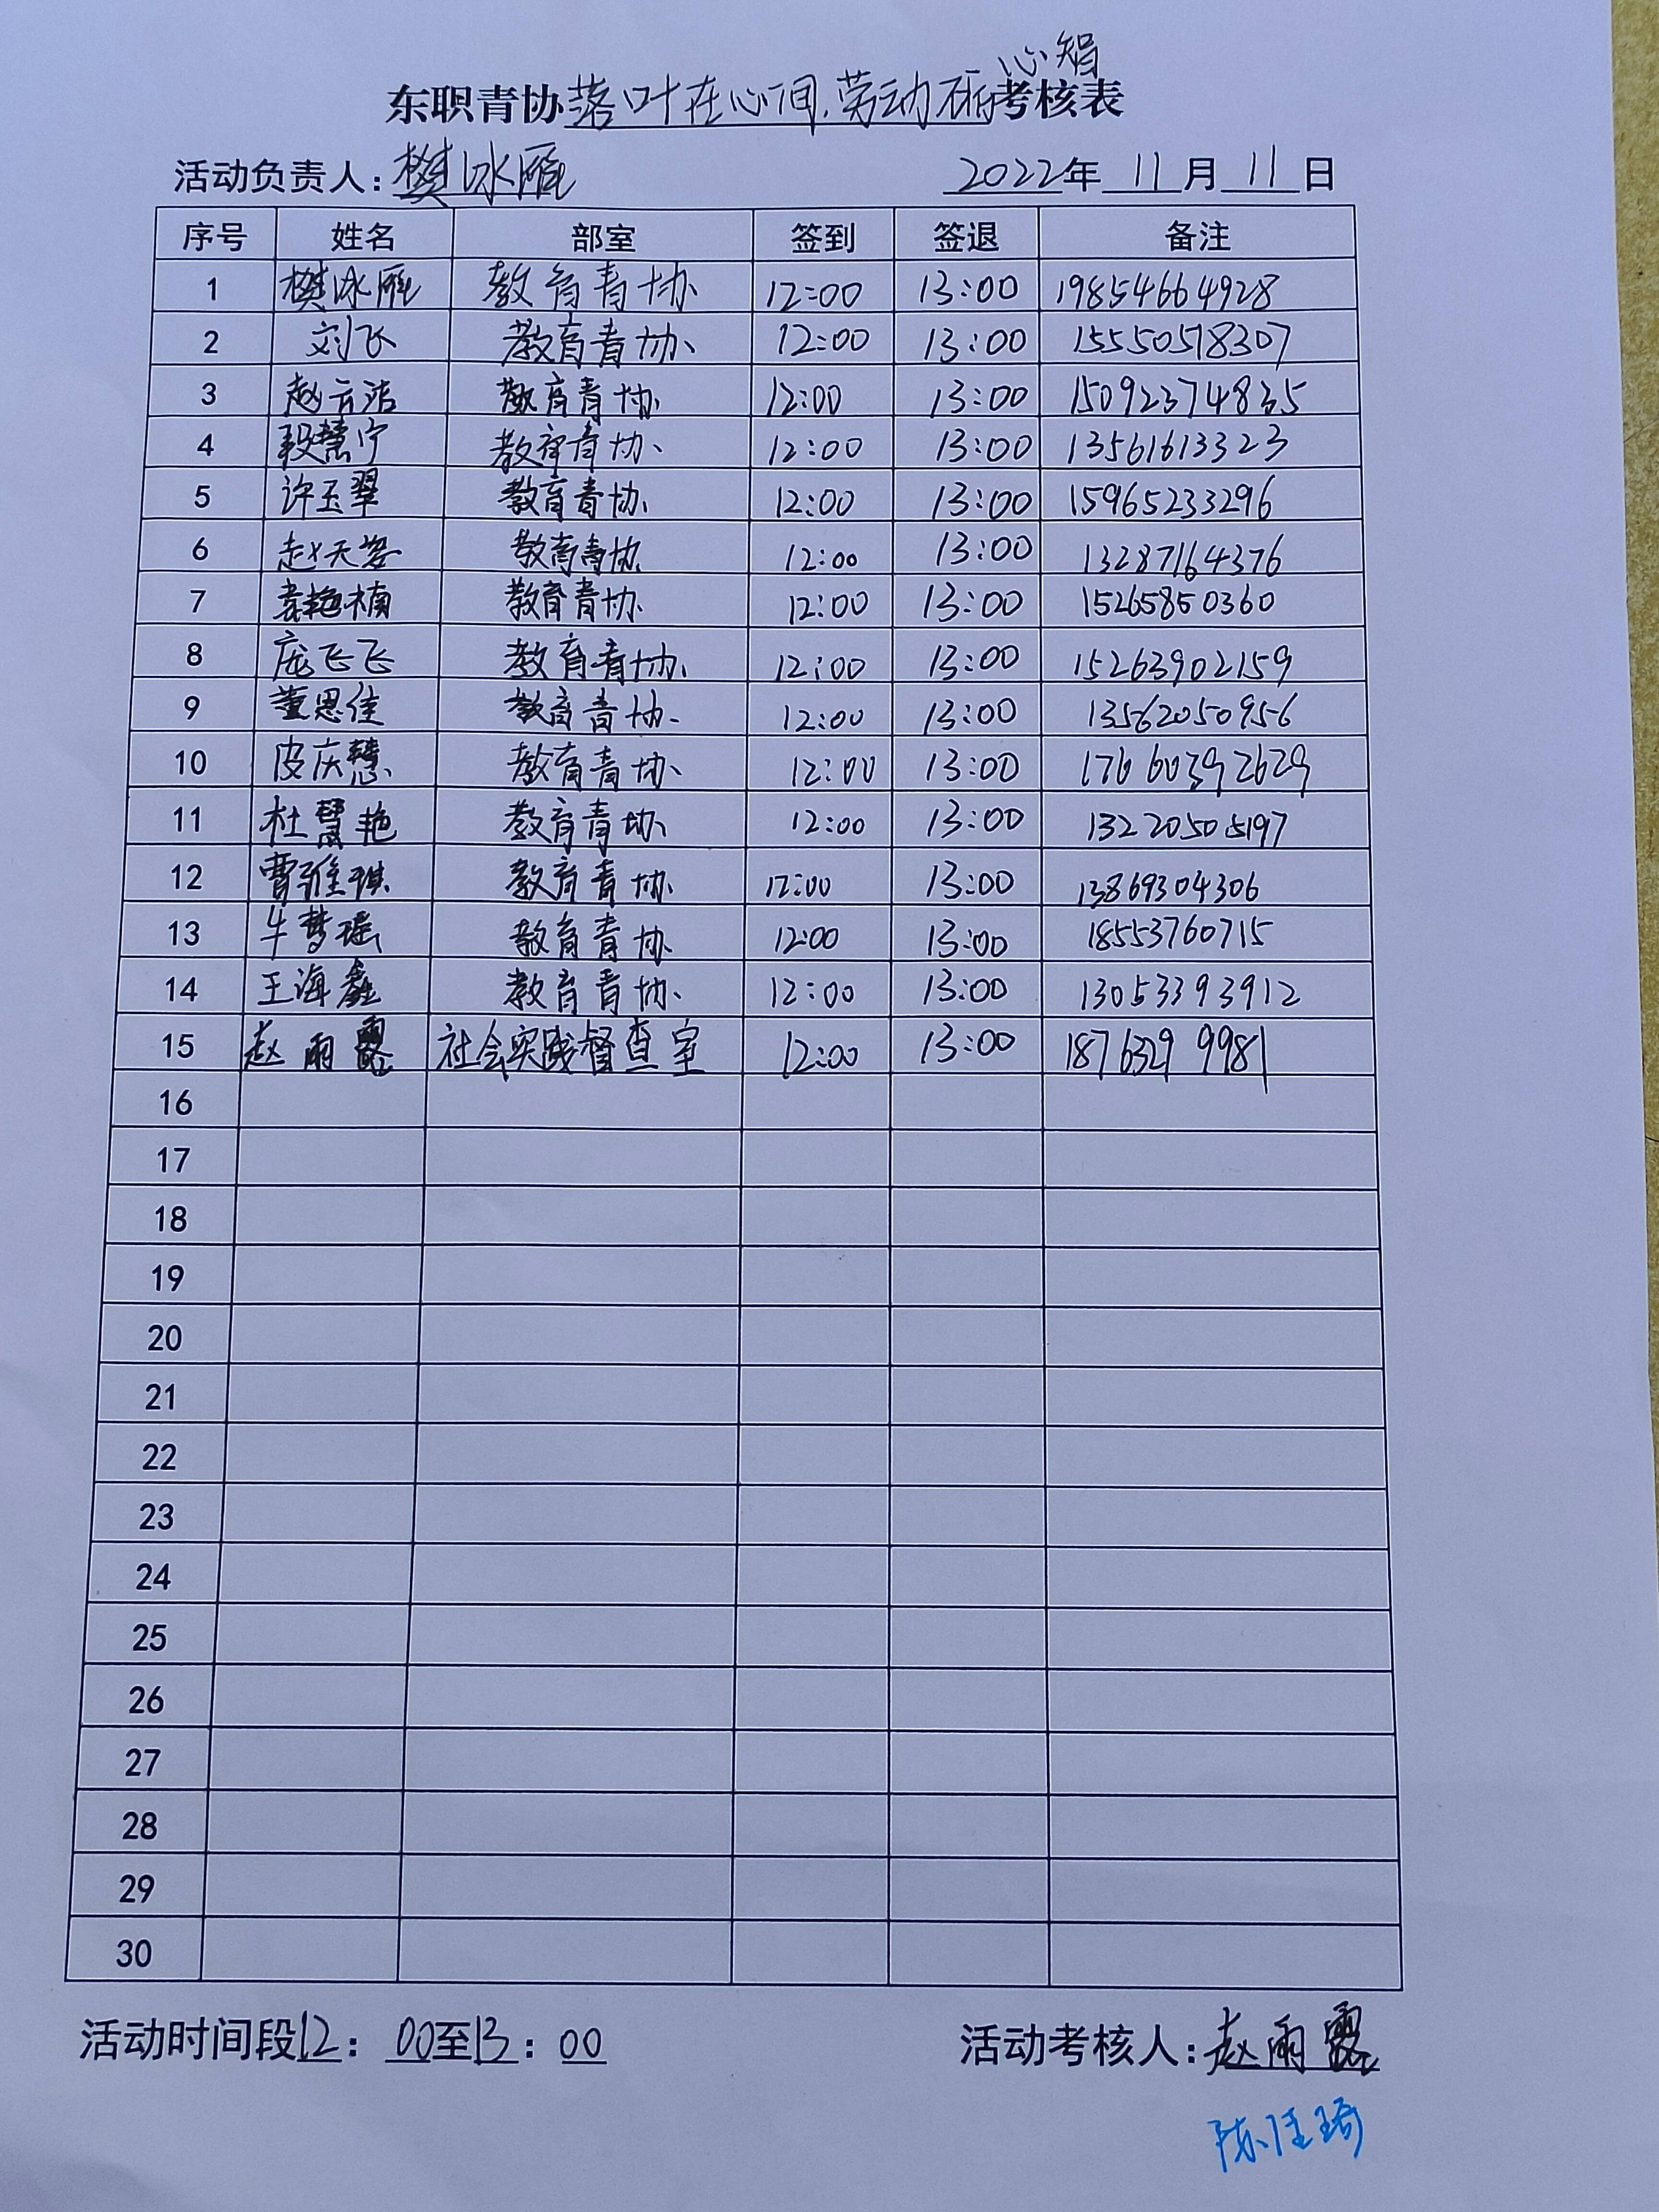 心智
东职青协落叶在心间,劳动研考核表
活动负责人:樊冰雁 2022年11月11日
序号 姓名 部室 签到 签退 备注
1 樊冰雁 教育青协 12:00 13:00 19854664928
2 刘飞 教育青协 12:00 13:00 15550518307
3 赵云洁 教育青协 12:00 13:00 15092374835
4 段慧宁 教育青协 12:00 13:00 13561613323
5 许玉翠 教育青协 12:00 13:00 15965233296
6 赵天姿 教育青协 12:00 13:00 13287164376
7 袁艳楠 教育青协 12:00 13:00 15265850360
8 庞飞飞 教育青协 12:00 13:00 15263902159
9 董思佳 教育青协 12:00 13:00 13562050956
10 皮庆慧 教育青协 12:00 13:00 17660392629
11 杜慧艳 教育青协 12:00 13:00 13220505197
12 曹雅琪 教育青协 12:00 13:00 13869304306
13 牛梦瑶 教育青协 12:00 13:00 18553760715
14 王海鑫 教育青协 12:00 13:00 13053393912
15 赵雨露 社会实践督查室 12:00 13:00 18763299981
16
17
18
19
20
21
22
23
24
25
26
27
28
29
30
活动时间段12:00至13:00 活动考核人:赵雨露
陈佳琦